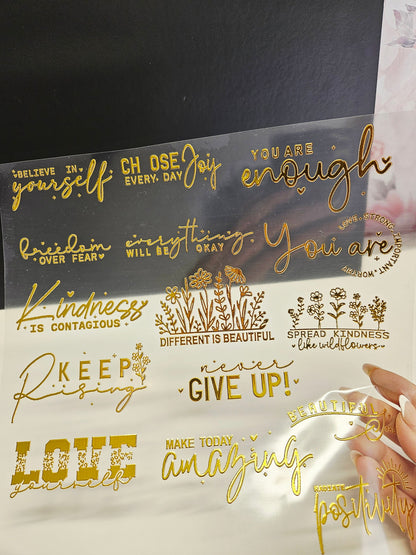 BELIEVE IN
yourself
CHOOSE Joy
EVERY DAY
YOU ARE
enough
freedom
OVER FEAR
everything
WILL BE OKAY
You are
LOVED STRONG IMPORTANT WORTHY
Kindness
IS CONTAGIOUS
DIFFERENT IS BEAUTIFUL
SPREAD KINDNESS
like wildflowers
KEEP
Rising
never
GIVE UP!
BEAUTIFUL
LOVE
yourself
MAKE TODAY
amazing
positivity